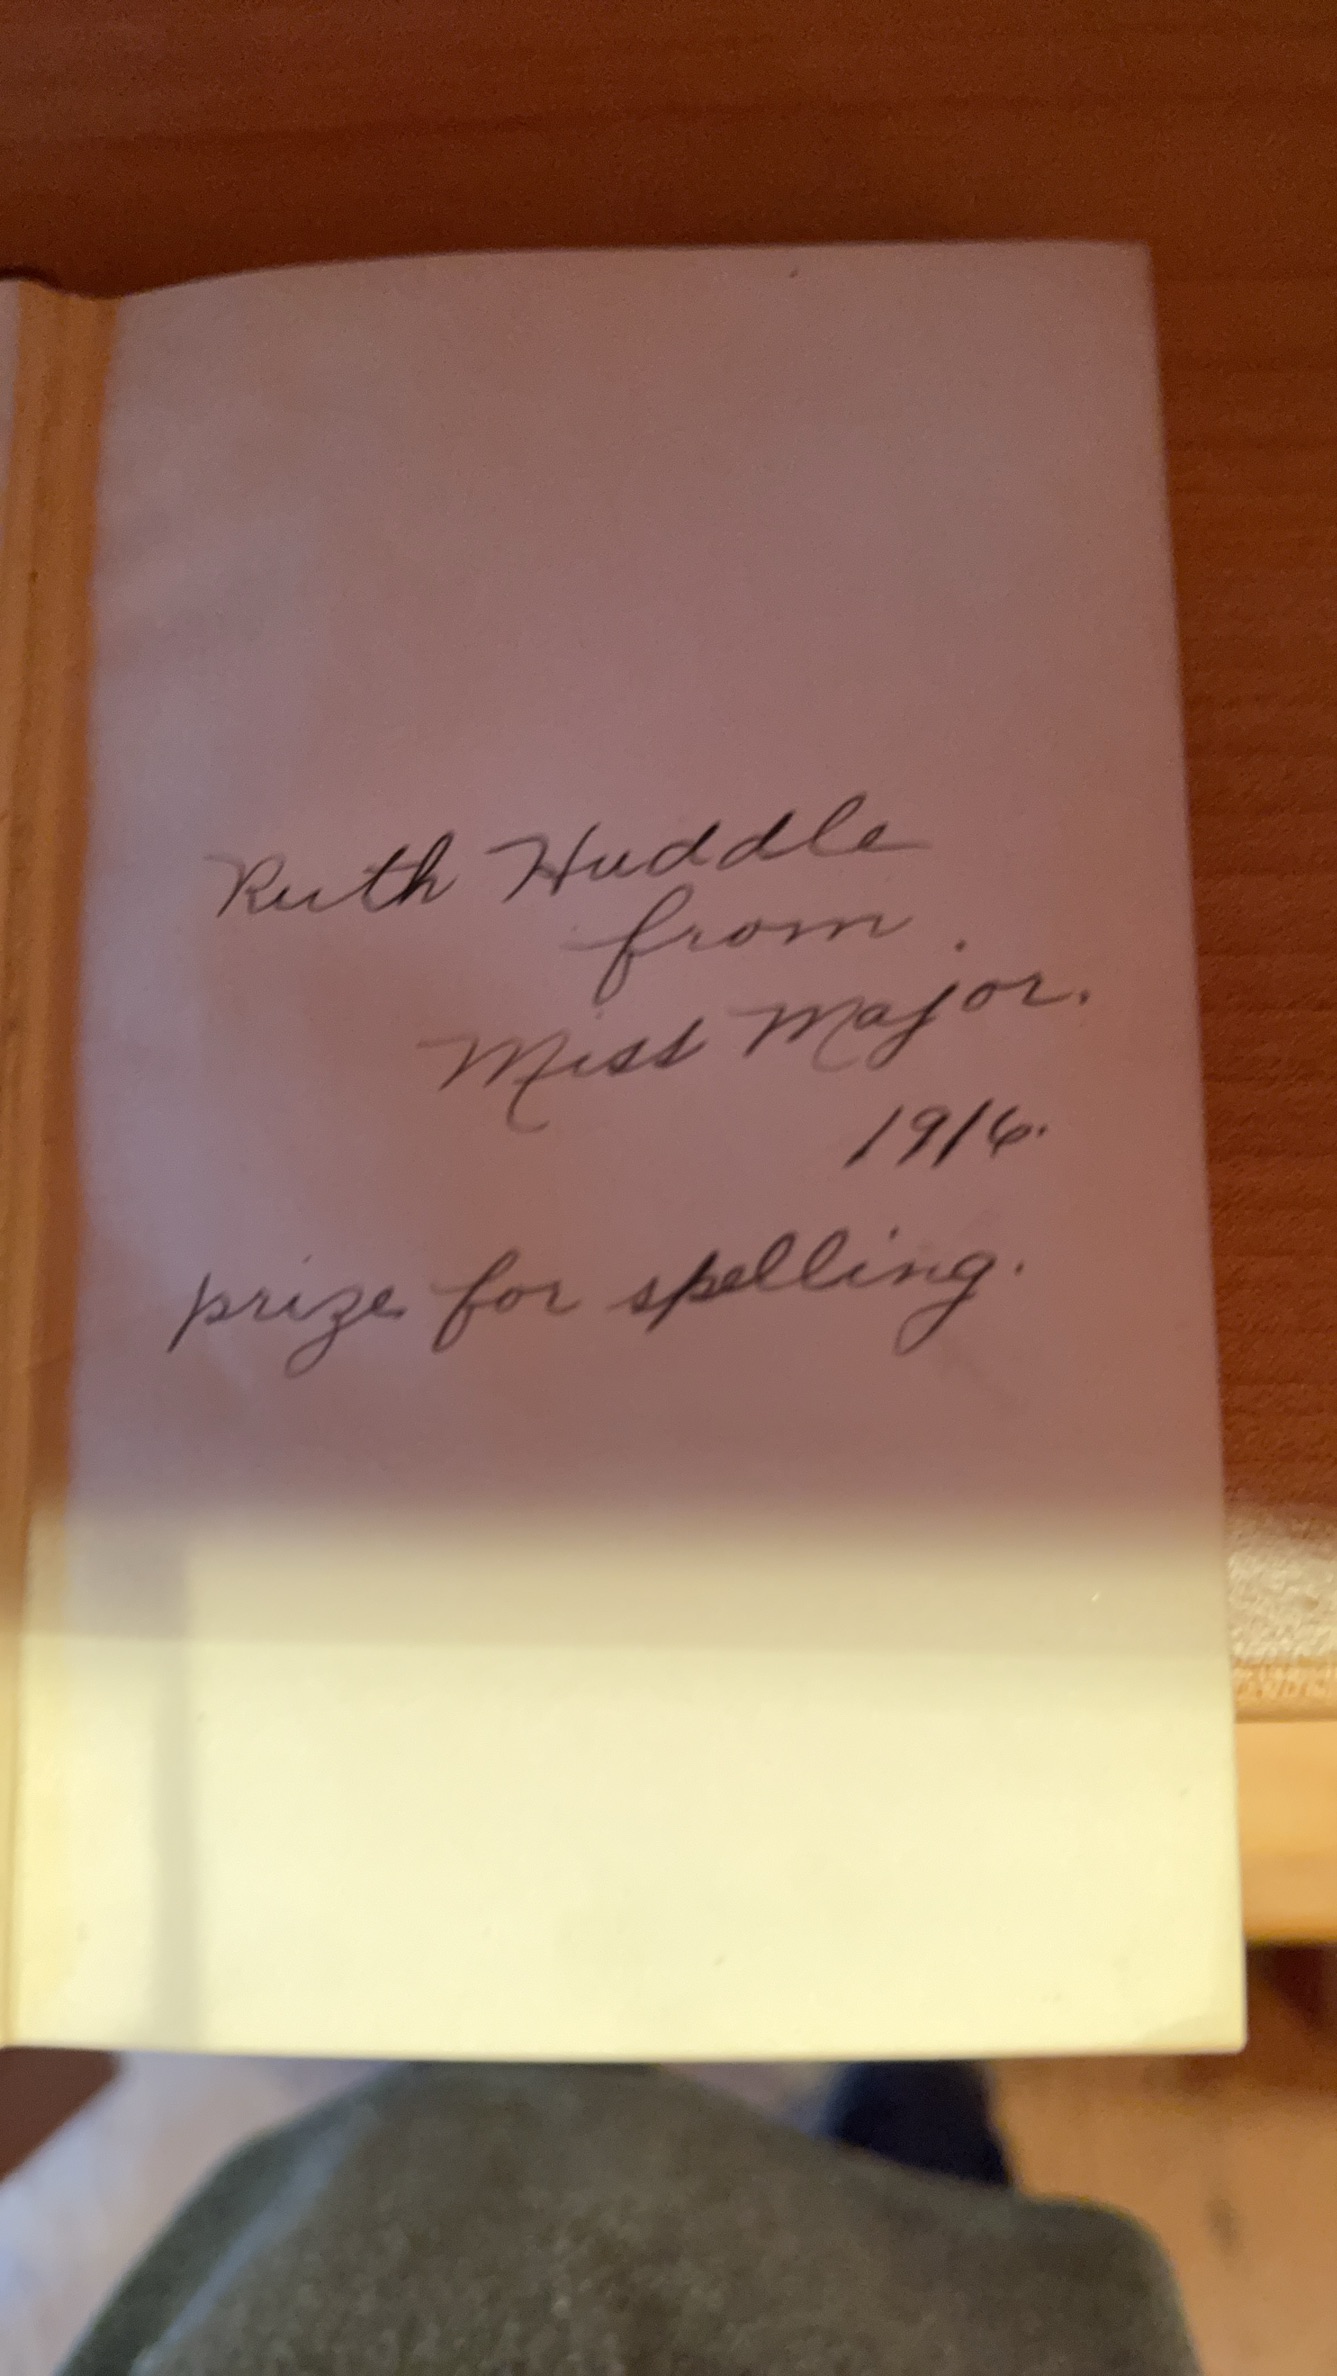 Ruth Huddle
from
Miss Major.
1916.
prize for spelling.